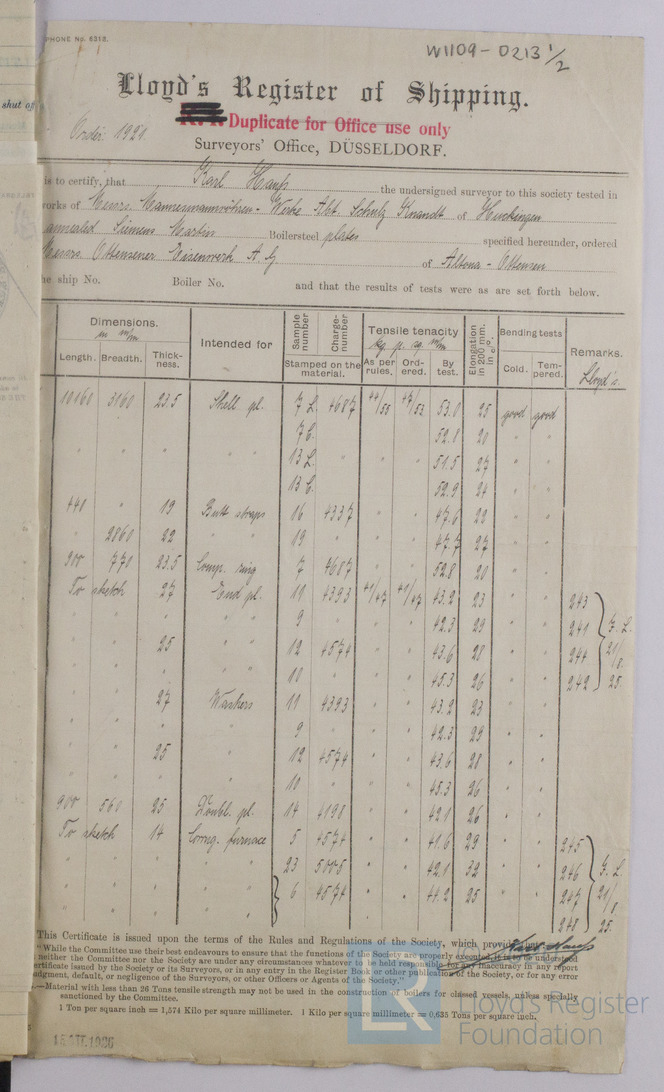 PHONE No. 6318.
W1109-0213 1/2
Lloyd's Register of Shipping.
Duplicate for Office use only
Order 1921.
Surveyors' Office, DÜSSELDORF.
shut off
is to certify, that Karl Hanß the undersigned surveyor to this society tested in
works of Messrs. Mannesmannröhren-Werke Abt. Schulz Knaudt of Huckingen
annealed Siemens Martin Boilersteel plates specified hereunder, ordered
Messrs Ottensener Eisenwerk A.G. of Altona-Ottensen
he ship No. Boiler No. and that the results of tests were as are set forth below.
Dimensions. in m/m Intended for Sample number Charge-number Tensile tenacity Kg p. sq. m/m Elongation in 200 mm. in %. Bending tests Remarks.
Length. Breadth. Thick-ness. Stamped on the material. As per rules. Ord-ered. By test. Cold. Tem-pered. Lloyd's.
10160 3160 23.5 Shell pl. 7 L. 4687 44/55 47/52 53.0 25 good good
7 C. 52.8 20 " "
" " " " " 13 L. " " " 51.5 27 " "
13 C. 52.9 24 " "
440 " 19 Butt straps 16 4337 " " 47.6 22 " "
" 2860 22 " " 19 " " " 47.7 27 " "
900 770 23.5 Comp. ring 7 4687 " " 52.8 20 " "
To sketch 27 End pl. 11 4393 41/47 41/47 43.2 23 " " 243
" " " " 9 " " " 42.3 29 " " 241 F. L.
" 25 " " 12 4574 " " 43.6 28 " " 244 21/8.
" " " " 10 " " " 45.3 26 " " 242 25.
" " 27 Washers 11 4393 " " 43.2 23 " "
" " " " 9 " " " 42.3 29 " "
" " 25 " 12 4574 " " 43.6 28 " "
" " " " 10 " " " 45.3 26 " "
900 560 25 Doubl. pl. 14 4198 " " 42.1 26 " "
To sketch 14 Corrug. furnace 5 4574 " " 41.6 29 " " 245
" " " " 23 5005 " " 42.1 32 " " 246 F. L.
" " " " 6 4574 " " 44.2 25 " " 247 21/8
248 25.
This Certificate is issued upon the terms of the Rules and Regulations of the Society, which provide that:—
"While the Committee use their best endeavours to ensure that the functions of the Society are properly executed, it is to be understood
neither the Committee nor the Society are under any circumstances whatever to be held responsible for any inaccuracy in any report
ertificate issued by the Society or its Surveyors, or in any entry in the Register Book or other publication of the Society, or for any error
udgment, default, or negligence of the Surveyors, or other Officers or Agents of the Society."
Karl Hanß
—Material with less than 26 Tons tensile strength may not be used in the construction of boilers for classed vessels, unless specially
sanctioned by the Committee.
1 Ton per square inch = 1,574 Kilo per square millimeter. 1 Kilo per square millimeter = 0,635 Tons per square inch.
LR
© Lloyd's Register
Foundation